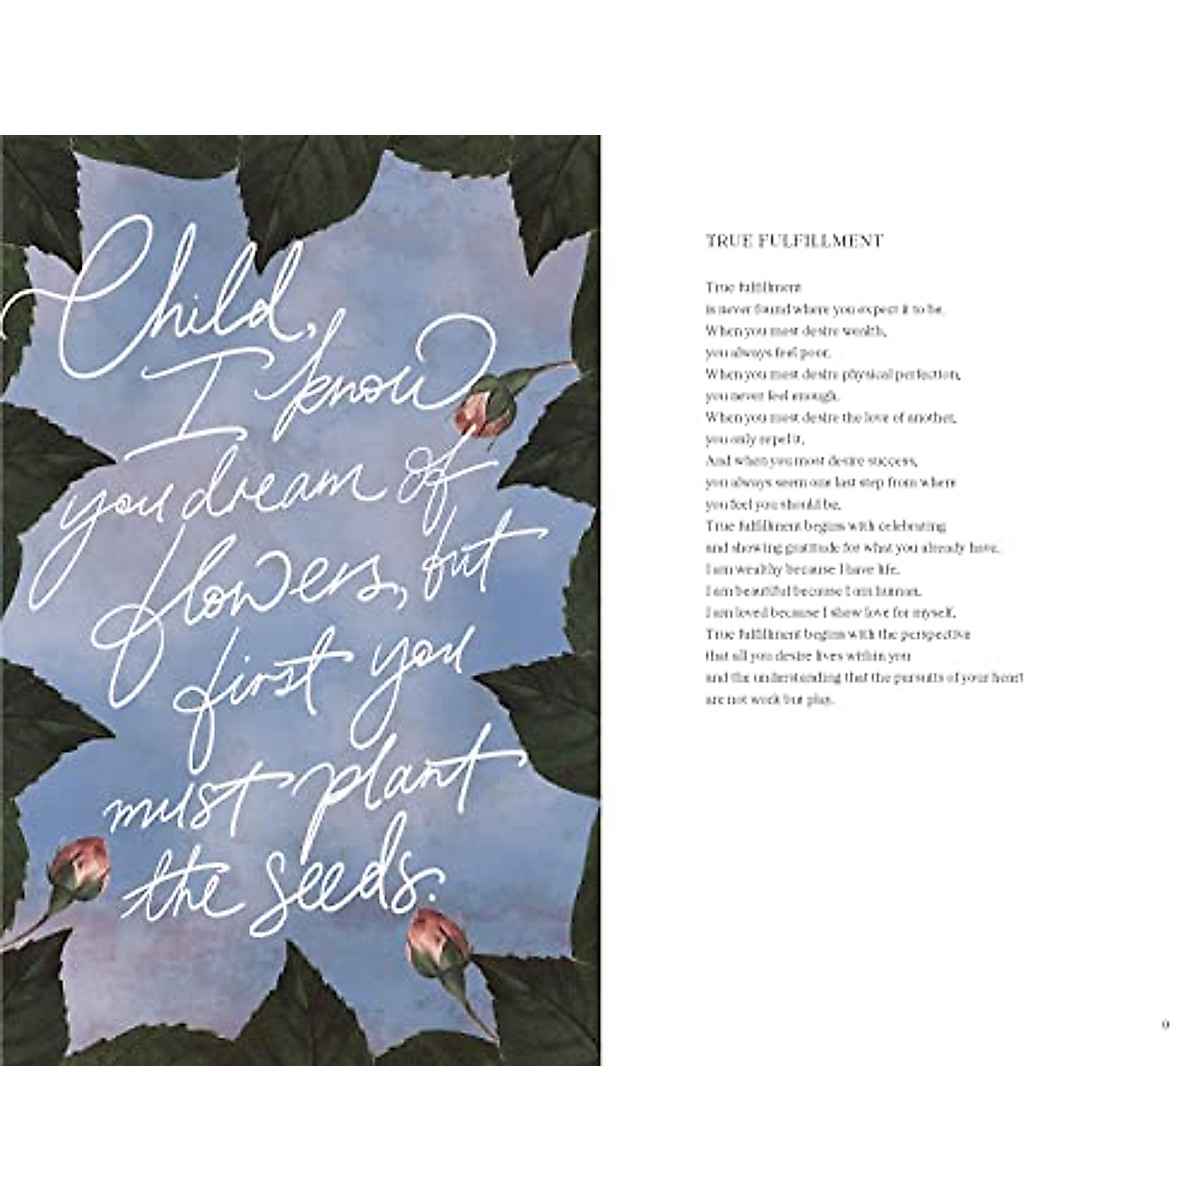 Child,
I know
you dream of
flowers, but
first you
must plant
the seeds.
TRUE FULFILLMENT
True fulfillment
is never found where you expect it to be.
When you most desire wealth,
you always feel poor.
When you most desire physical perfection,
you never feel enough.
When you most desire the love of another,
you only repel it.
And when you most desire success,
you always seem one last step from where
you feel you should be.
True fulfillment begins with celebrating
and showing gratitude for what you already have.
I am wealthy because I have life.
I am beautiful because I am human.
I am loved because I show love for myself.
True fulfillment begins with the perspective
that all you desire lives within you
and the understanding that the pursuits of your heart
are not work but play.
9